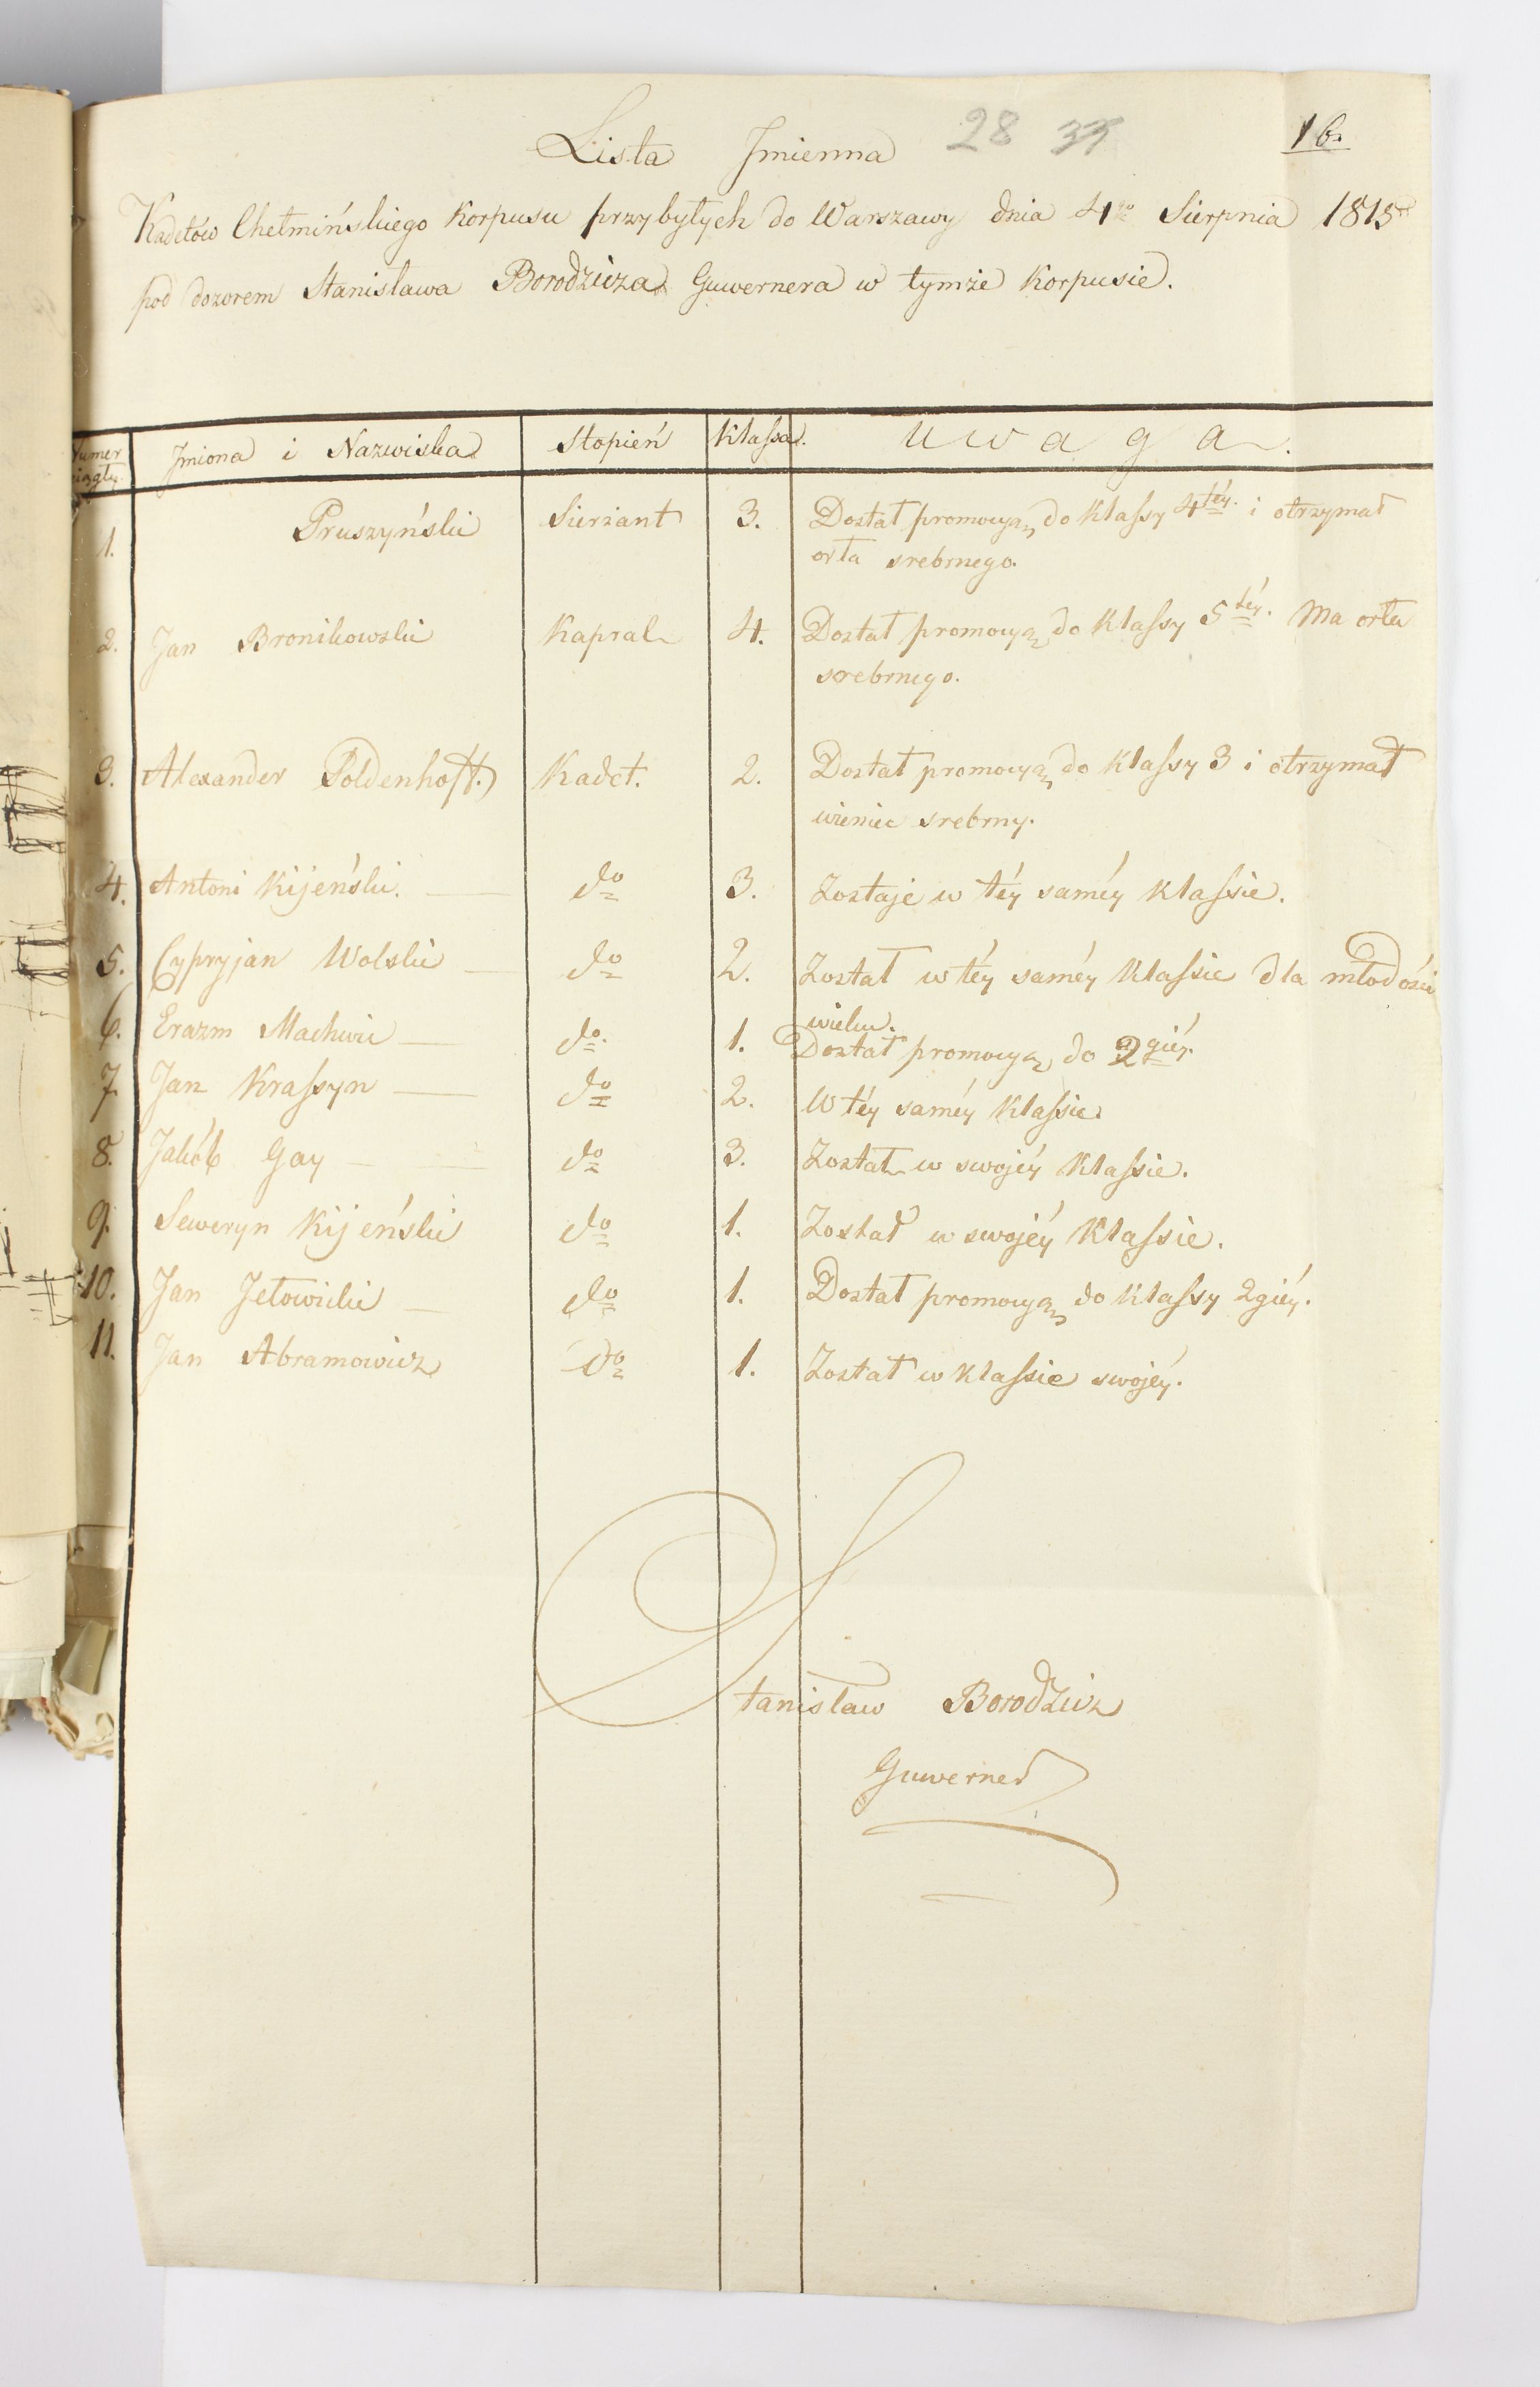 Lista Jmienna 28 16.
Kadetów Chełmińskiego Korpusu przybyłych do Warszawy dnia 4go Sierpnia 1815
pod dozorem Stanisława Borodzicza Guwernera w tymże Korpusie.
Numer ciągły. Jmiona i Nazwiska Stopień Klassa. Uwaga.
1. Pruszyński Sierżant 3. Dostał promocyą do klassy 4téy. i otrzymał
orła srebrnego.
2. Jan Bronikowski Kapral 4. Dostał promocyą do klassy 5téy. Ma orła
srebrnego.
3. Alexander Poldenhoff. Kadet. 2. Dostał promocyą do klassy 3 i otrzymał
wieniec srebrny.
4. Antoni Kijeński. do 3. Zostaje w téy saméy klassie.
5. Cypryjan Wolski do 2. Został w téy saméy klassie dla młodości
wieku.
6. Erazm Machwic do. 1. Dostał promocyą do 2giéy.
7. Jan Krassyn do 2. W téy saméy klassie.
8. Jakób Gay do 3. Został w swojéy klassie.
9. Seweryn Kijeński do 1. Został w swojéy klassie.
10. Jan Jełowicki do 1. Dostał promocyą do klassy 2giéy.
11. Jan Abramowicz do 1. Został w klassie swojéy.
Stanisław Borodzicz
Guwerner